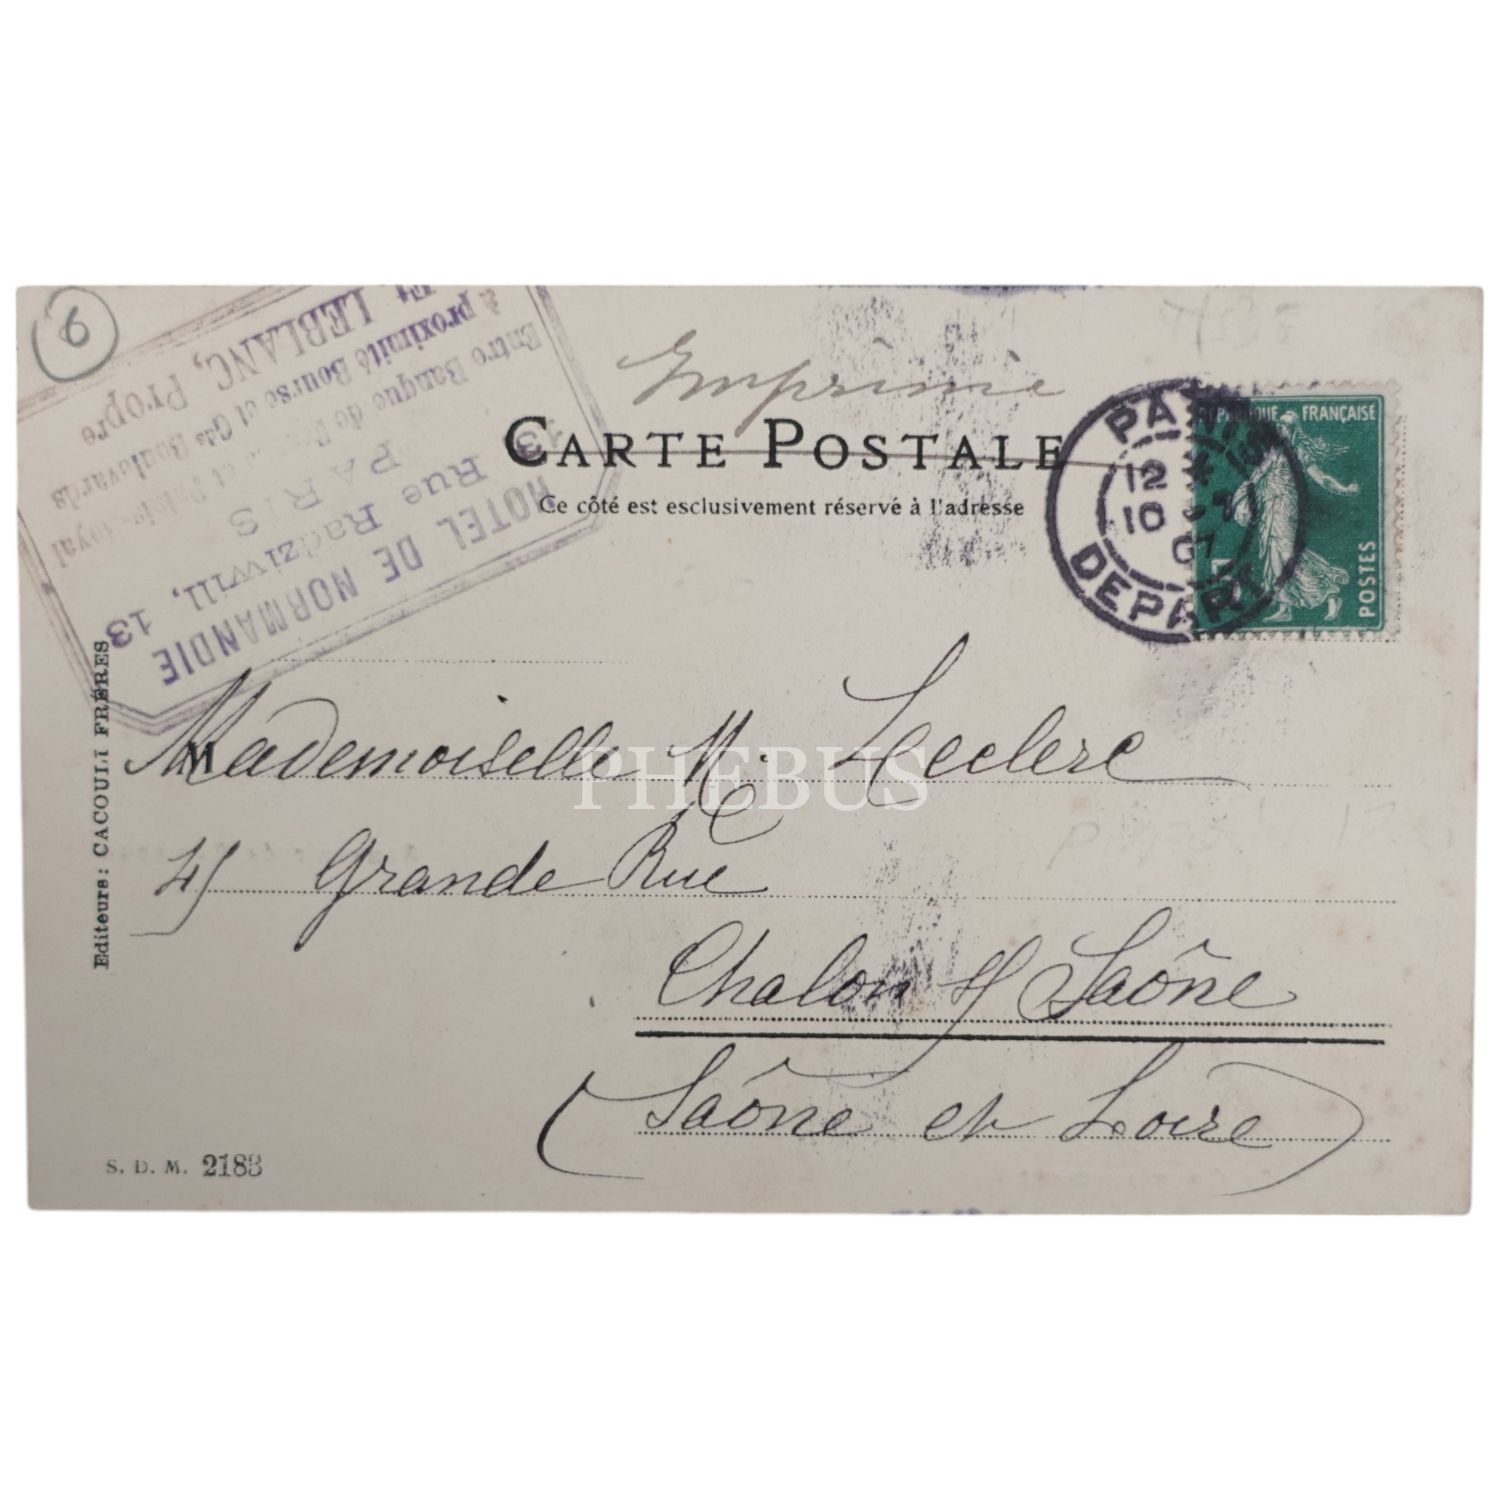 6
HOTEL DE NORMANDIE
13 Rue Radziwill, 13
PARIS
Entre Banque de et Palais-Royal
à proximité Bourse et Gds Boulevards
LEBLANC, Propre
Imprimé
CARTE POSTALE
Ce côté est esclusivement réservé à l'adresse
RÉPUBLIQUE FRANÇAISE
POSTES
PARIS
12
10
07
DEPART
Mademoiselle M. Leclerc
PHEBUS
45 Grande Rue
Chalon s/ Saône
(Saône et Loire)
Editeurs: CACOULI FRÉRES
S. D. M. 2183